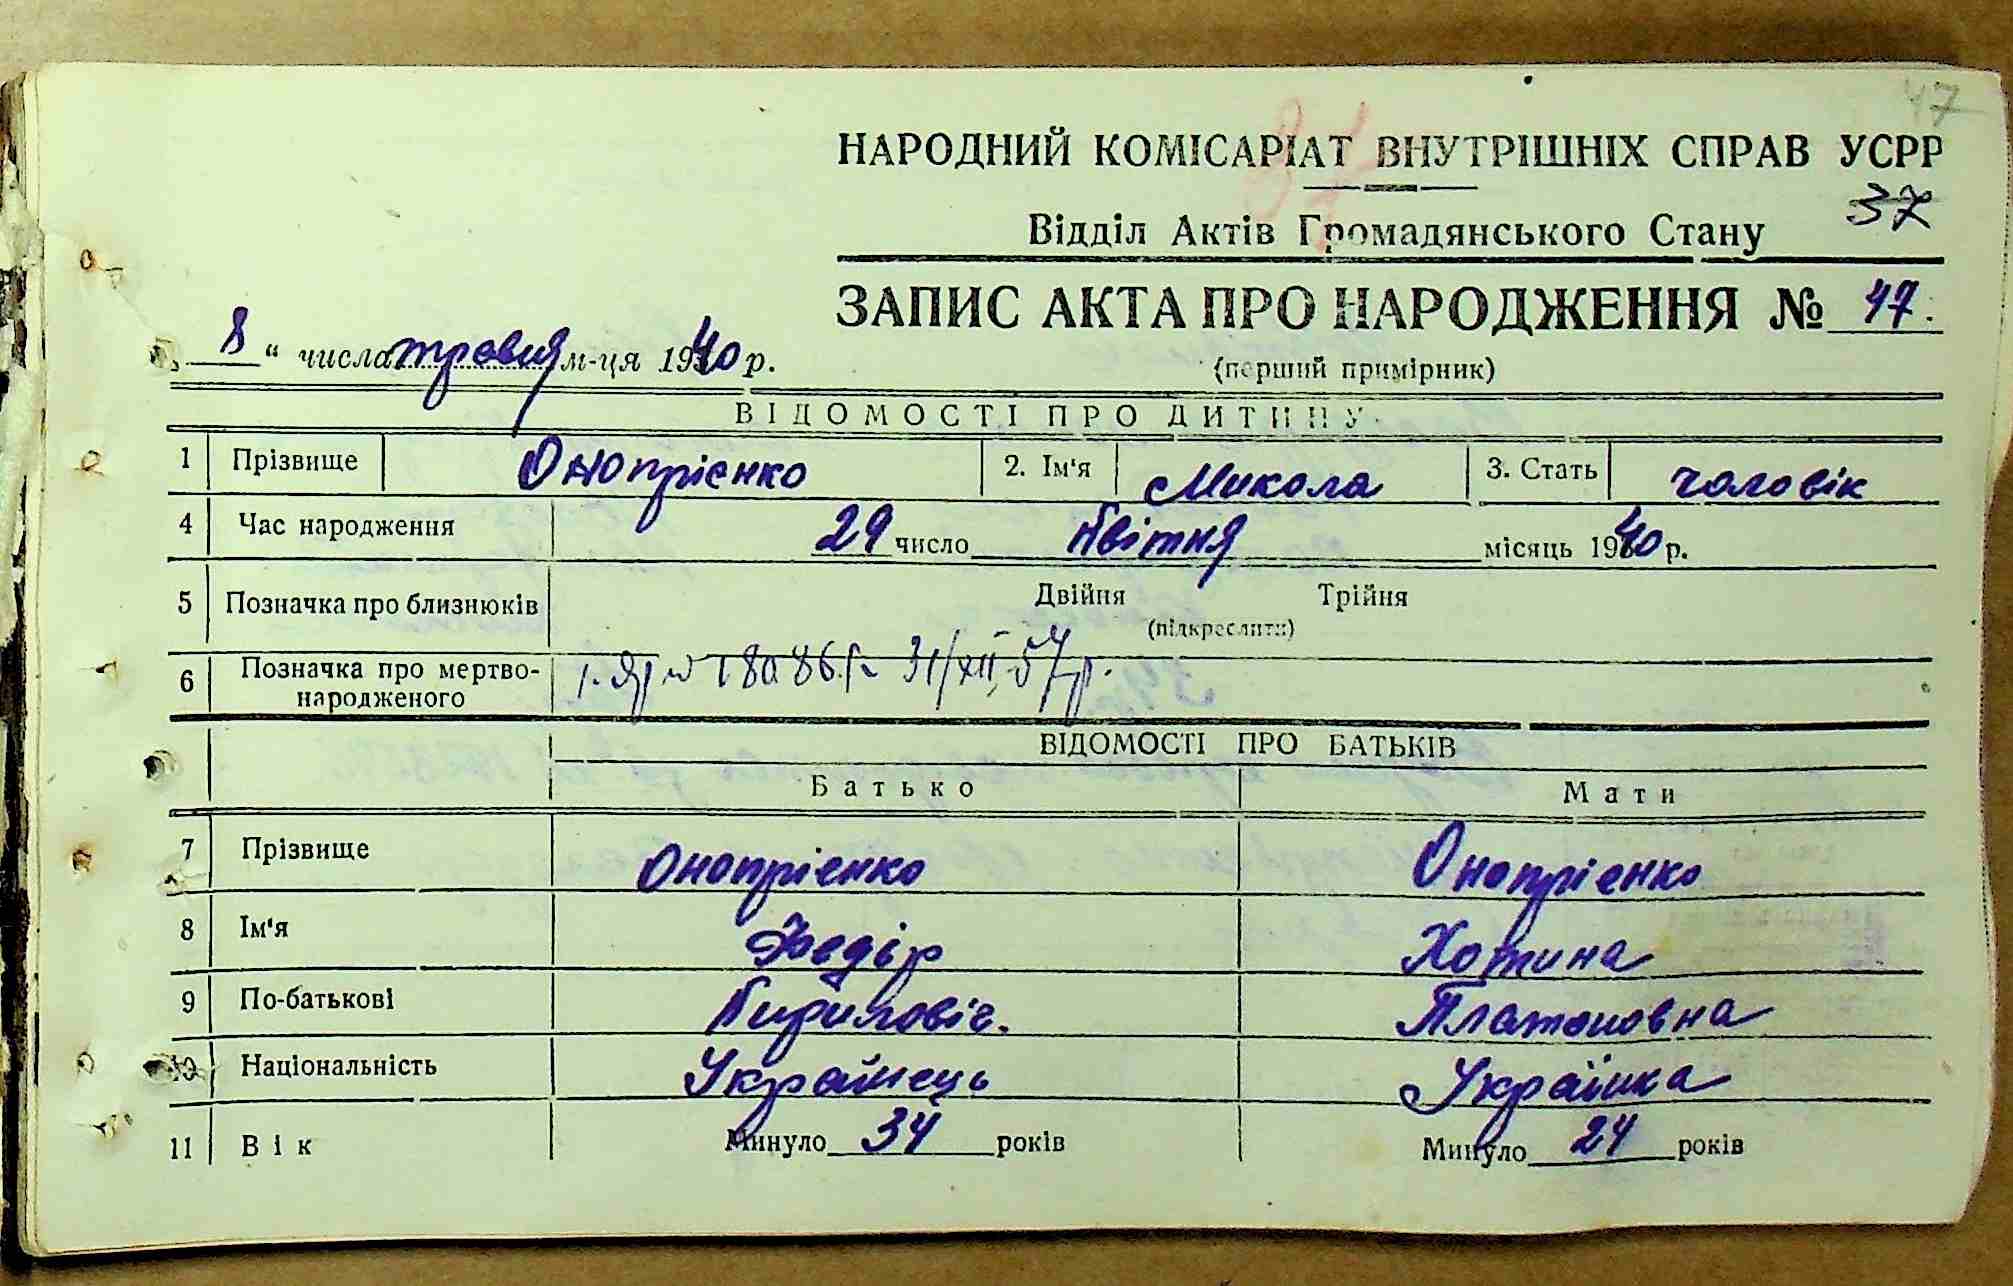 47
НАРОДНИЙ КОМІСАРІАТ ВНУТРІШНІХ СПРАВ УСРР
37
37
Відділ Актів Громадянського Стану
ЗАПИС АКТА ПРО НАРОДЖЕННЯ № 47.
(перший примірник)
„ 8 “ числа травня м-ця 1940 р.
ВІДОМОСТІ ПРО ДИТИНУ
1 Прізвище Онопрієнко 2. Ім'я Микола 3. Стать чоловік
4 Час народження 29 число Квітня місяць 1940 р.
5 Позначка про близнюків Двійня Трійня
(підкреслити)
6 Позначка про мертво-
народженого
31/XII, 57 р.
ВІДОМОСТІ ПРО БАТЬКІВ
Батько Мати
7 Прізвище Онопрієнко Онопрієнко
8 Ім'я Федір Хотина
9 По-батькові Кириловіч. Платоновна
10 Національність Українець Українка
11 Вік Минуло 34 років Минуло 24 років